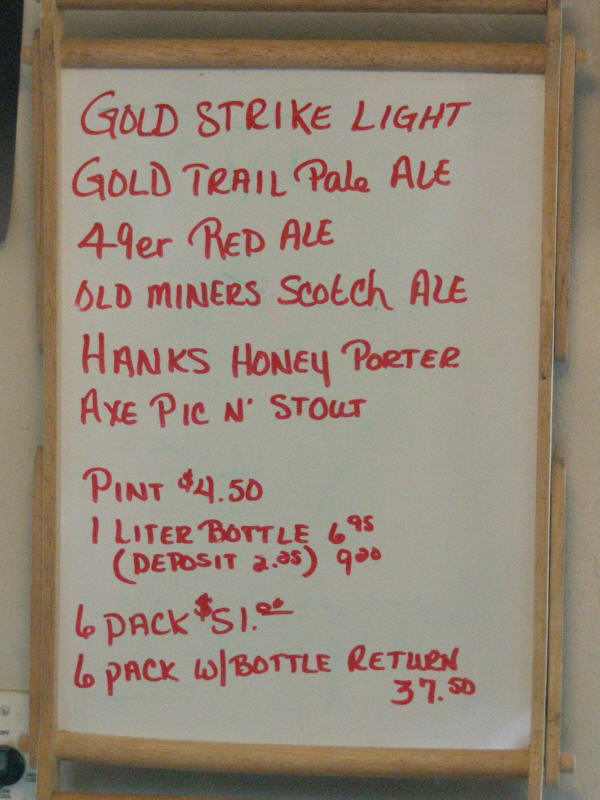 GOLD STRIKE LIGHT
GOLD TRAIL Pale ALE
49er RED ALE
OLD MINERS Scotch ALE
HANKS HONEY PORTER
AXE PIC N' STOUT
PINT $4.50
1 LITER BOTTLE 6 95
(DEPOSIT 2.25) 9 20
6 PACK $51.00
6 PACK W/BOTTLE RETURN
37.50